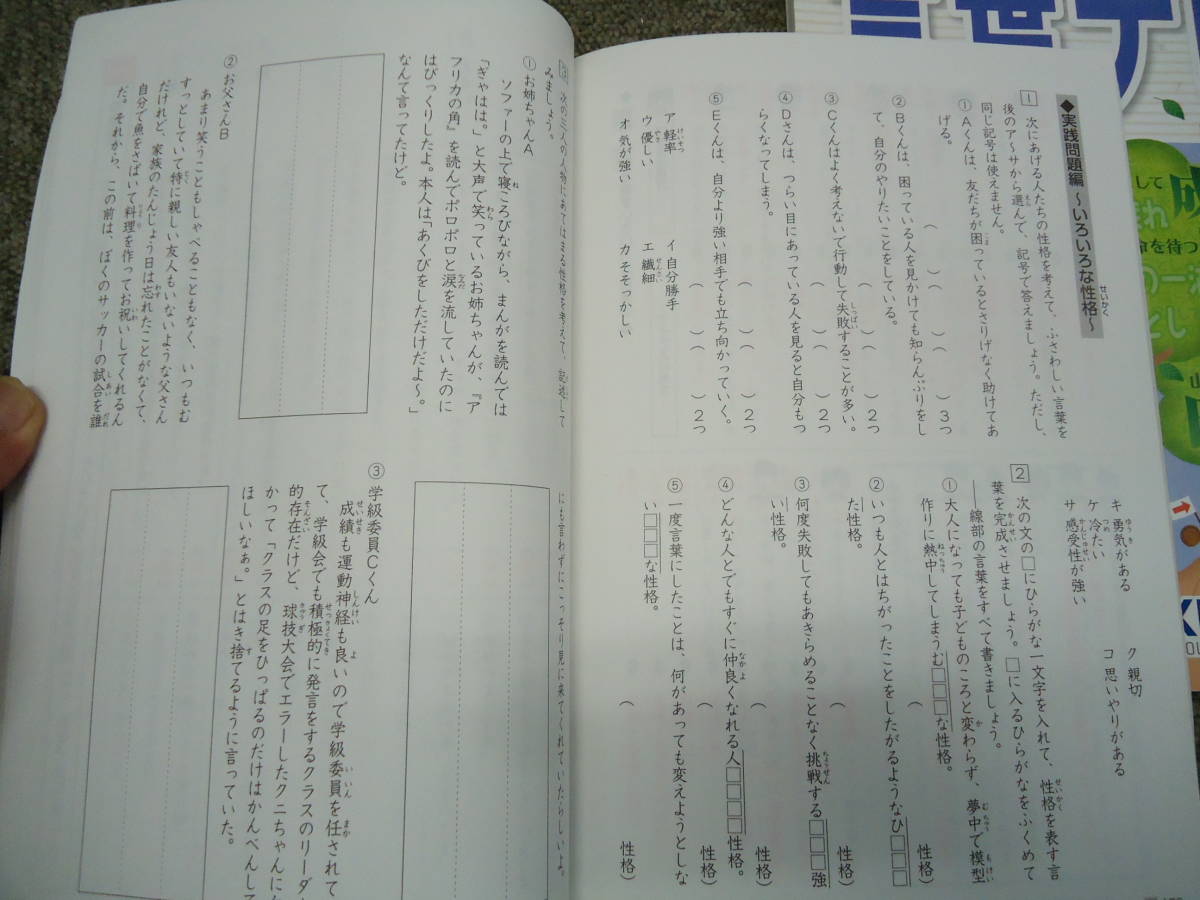 ◆実践問題編 ～いろいろな性格～
1 次にあげる人たちの性格を考えて、ふさわしい言葉を
後のア～サから選んで、記号で答えましょう。ただし、
同じ記号は使えません。
①Aくんは、友だちが困っているとさりげなく助けてあ
げる。
（　）（　）（　）3つ
②Bくんは、困っている人を見かけても知らんぷりをし
て、自分のやりたいことをしている。
（　）（　）2つ
③Cくんはよく考えないで行動して失敗することが多い。
（　）（　）2つ
④Dさんは、つらい目にあっている人を見ると自分もつ
らくなってしまう。
（　）（　）2つ
⑤Eくんは、自分より強い相手でも立ち向かっていく。
（　）（　）2つ
ア 軽率
イ 自分勝手
ウ 優しい
エ 繊細
オ 気が強い
カ そそっかしい
キ 勇気がある
ク 親切
ケ 冷たい
コ 思いやりがある
サ 感受性が強い
2 次の文の□にひらがな一文字を入れて、性格を表す言
葉を完成させましょう。□に入るひらがなをふくめて
――線部の言葉をすべて書きましょう。
①大人になっても子どものころと変わらず、夢中で模型
作りに熱中してしまうむ□□□な性格。
（　性格）
②いつも人とはちがったことをしたがるようなひ□□□
た性格。
（　性格）
③何度失敗してもあきらめることなく挑戦する□□□強
い性格。
（　性格）
④どんな人とでもすぐに仲良くなれる人□□□□性格。
（　性格）
⑤一度言葉にしたことは、何があっても変えようとしな
い□□□な性格。
（　性格）
3 次の三人の人物にあてはまる性格を考えて、記述して
みましょう。
①お姉ちゃんA
ソファーの上で寝ころびながら、まんがを読んでは
「ぎゃはは。」と大声で笑っているお姉ちゃんが、『ア
フリカの角』を読んでポロポロと涙を流していたのに
はびっくりしたよ。本人は「あくびをしただけだよ～。」
なんて言ってたけど。
②お父さんB
あまり笑うこともしゃべることもなく、いつもむ
すっとしていて特に親しい友人もいないような父さん
だけれど、家族のたんじょう日は忘れたことがなくて、
自分で魚をさばいて料理を作ってお祝いしてくれるん
だ。それから、この前は、ぼくのサッカーの試合を誰
にも言わずにこっそり見に来てくれていたらしいよ。
③学級委員Cくん
成績も運動神経も良いので学級委員を任されて
て、学級会でも積極的に発言をするクラスのリーダー
的存在だけど、球技大会でエラーしたクニちゃんに
かって「クラスの足をひっぱるのだけはかんべんして
ほしいなぁ。」とはき捨てるように言っていた。